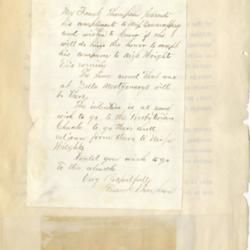 Mr Frank Thompson presents
his compliments to Miss
and wishes to know if she
will do him the honor to accept
his company to Miss Wright
this evening
The same crowd that was
at Montgomerys will
be there
The intention is at some
wish to go to the Presbyterian
Church to go there and
return from there to Miss
Wrights
Would you wish to go
to the church
Very Respectfully
Frank Thompson